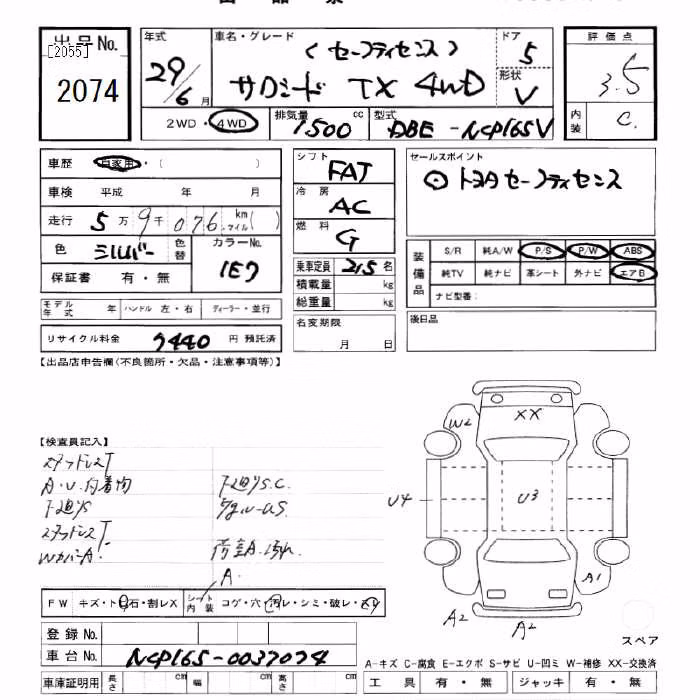 出品No.
[2055]
2074
年式
29/6月
車名・グレード
(セーフティセンス)
サクシード TX 4WD
ドア
5
形状
V
評価点
3.5
内装
C.
2WD・4WD
排気量
1500 cc
型式
DBE-NCP165V
車歴 自家用・( )
車検 平成 年 月
走行 5万9千076 km マイル( )
色 シルバー 色替
カラーNo.
1E7
保証書 有・無
モデル年式 年
ハンドル 左・右
ディーラー・並行
リサイクル料金 9440 円 預託済
シフト
FAT
冷房
AC
燃料
G
乗車定員 2/5 名
積載量 kg
総重量 kg
名変期限
月 日
セールスポイント
⊙トヨタセーフティセンス
装備品
S/R 純A/W P/S P/W ABS
純TV 純ナビ 革シート 外ナビ エアB
ナビ型番:
後日品
【出品店申告欄(不良箇所・欠品・注意事項等)】
【検査員記入】
スタッドレスT
A・U.付着物
下廻りS
スタッドレスT
WカバーA.
下廻りS.C.
荷室A.汚れ
A.
XX
W2
U4
U3
A1
A2
A2
スペア
FW キズ・トビ石・割レX
シート内装 コゲ・穴・汚レ・シミ・破レ・スリ
登録No.
車台No. NCP165-0037074
車庫証明用 長さ cm 幅 cm 高さ cm
A-キズ C-腐食 E-エクボ S-サビ U-凹ミ W-補修 XX-交換済
工具 有・無 ジャッキ 有・無